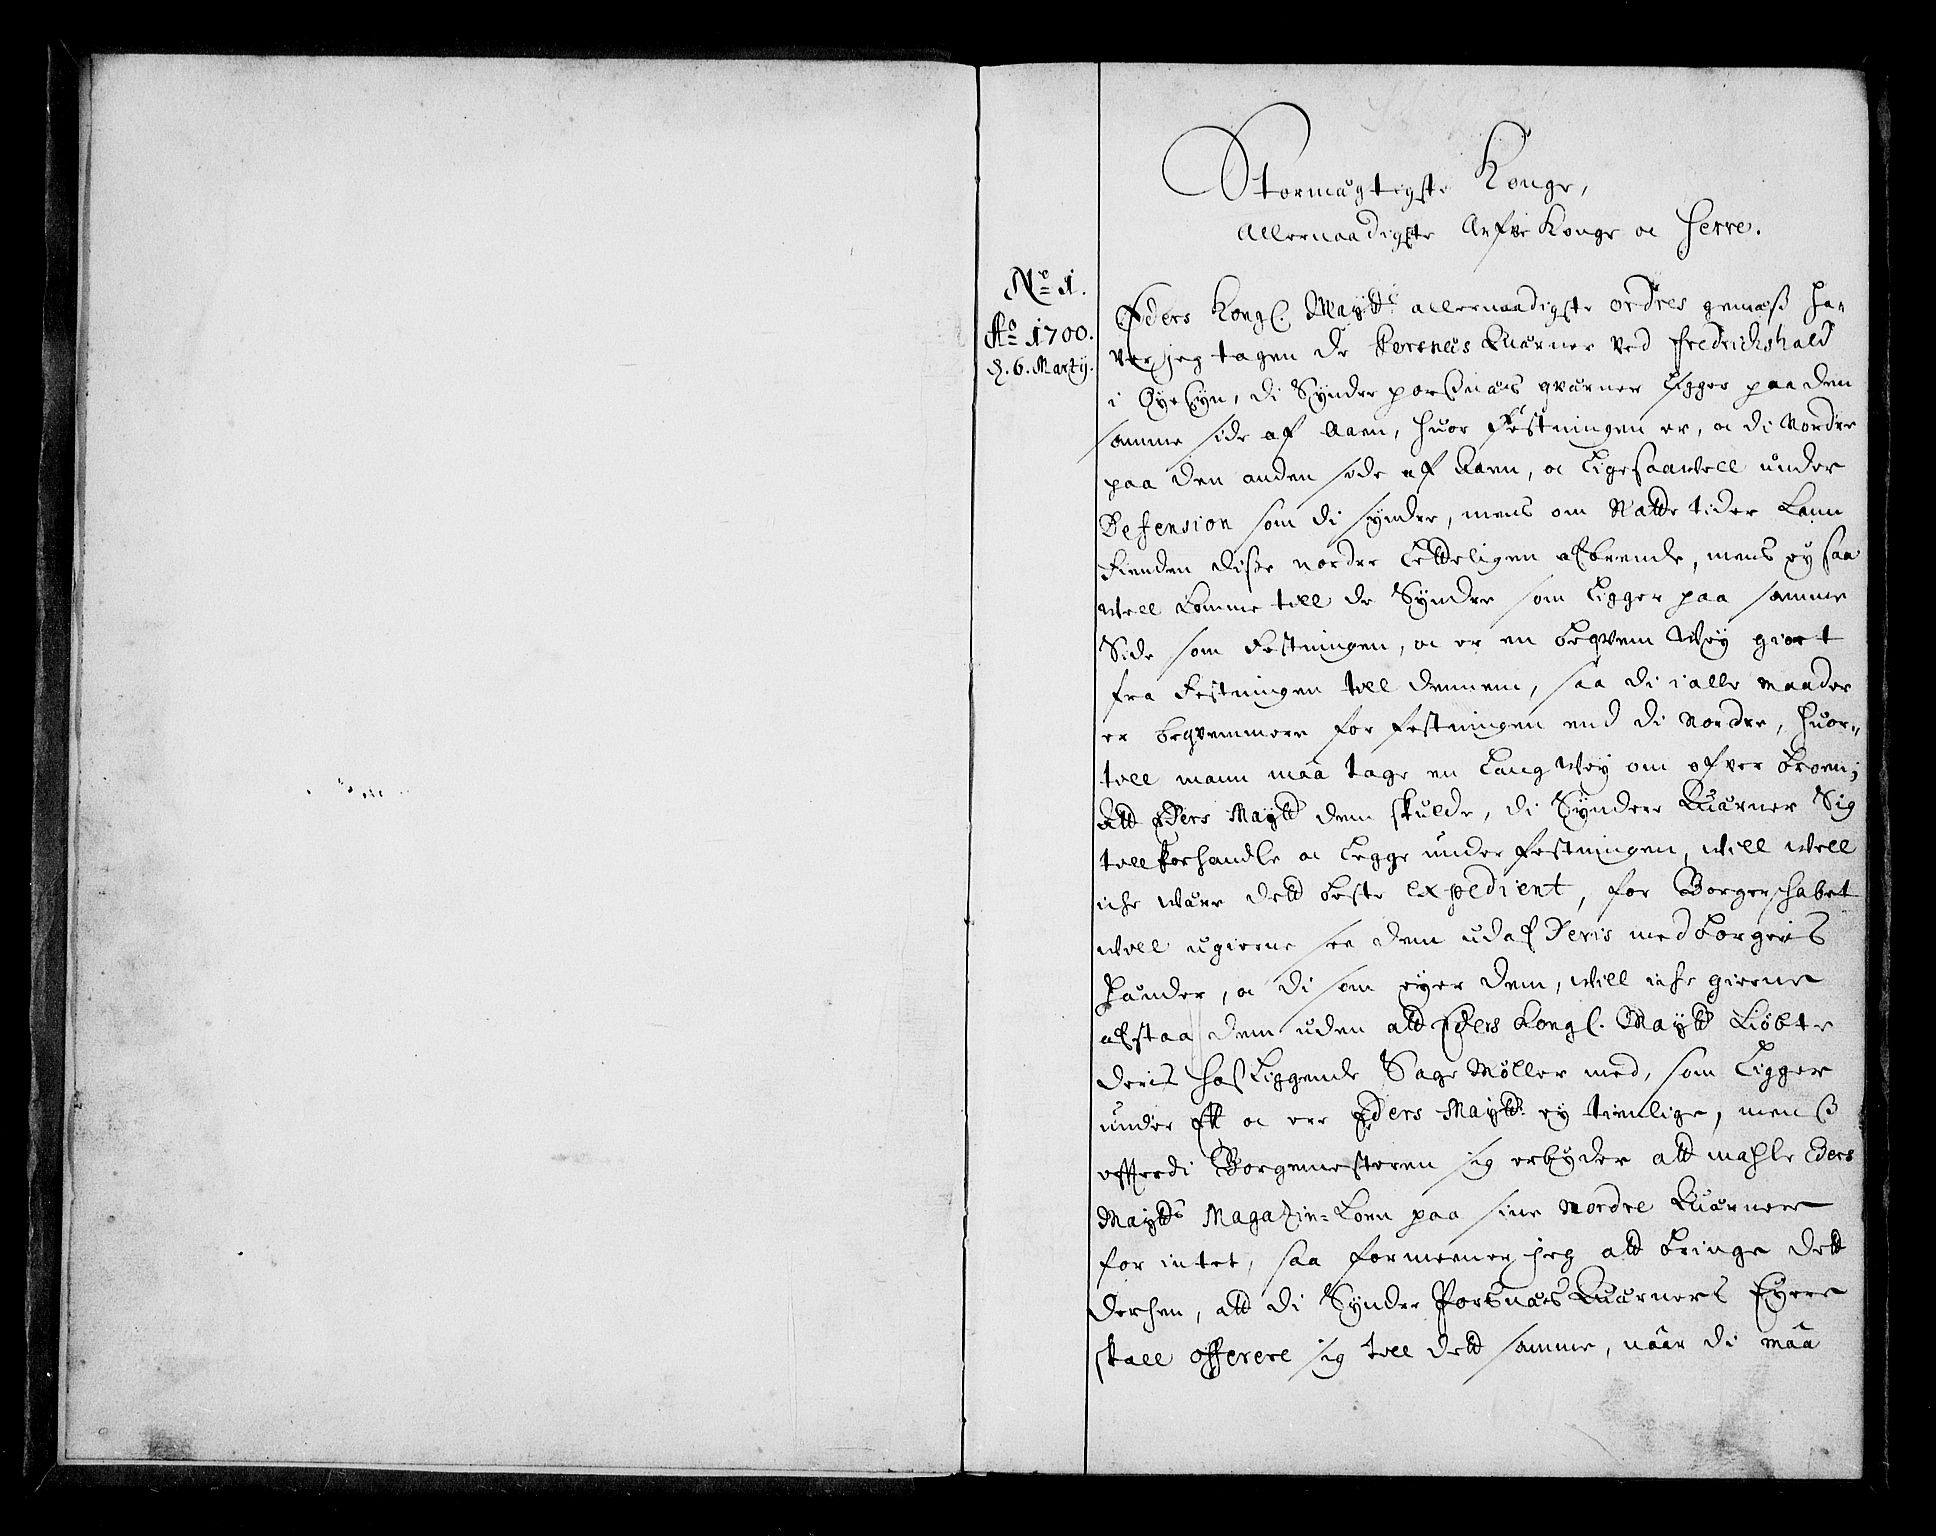 Stormægtigste Konge,
Allernaadigste Arfve Konge oc Herre.
No 1.
Ao 1700.
d. 6. Martij.
Eders Kongl. Maytts allernaadigste ordres gemæß ha-
ver jeg tagen de Porsnæs Quarner ved Fredrichshald
i Øye Syn, di Syndre porsnæs qvarner ligger paa den
samme side af Aaen, huor Festningen er, oc di Nordre
paa den anden side af Aaen, oc ligesaavell under
Defension som di syndre, mens om Natte tider kann
Fienden disse nordre letteligen afbrende, mens ey saa
well komme till de Syndre som ligger paa samme
Side som Festningen, oc er en beqvem Wey giort
fra Festningen till dennem, saa di i alle maader
er beqvemmere for festningen end di Nordre, huor-
till mann maa tage en lang Wey om ofver broen;
Att Eders Maytt dem skulde, di Syndre Quarner Sig
till forhandle oc legge under festningen, will well
iche være dett beste expedient, for Borgerschabet
will ugierne see dem udaf Deris medborgeris
hænder, oc di som eyer dem, will iche gierne
afstaa dem uden att Eders Kongl. Maytt kiøbte
deris hosliggende Sage Møller med, som ligger
under Ett oc ere Eders Maytt ey tienlige, menß
efftterdi Borgemesteren sig erbyder att mahle Eders
Maytts Magazin-Korn paa sine Nordre Quarner
for intet, saa formeener jeg att bringe dett
derhen, att di Syndre Porsnæs Quarners Eyere
skall offerere sig till dett samme, naar di maa